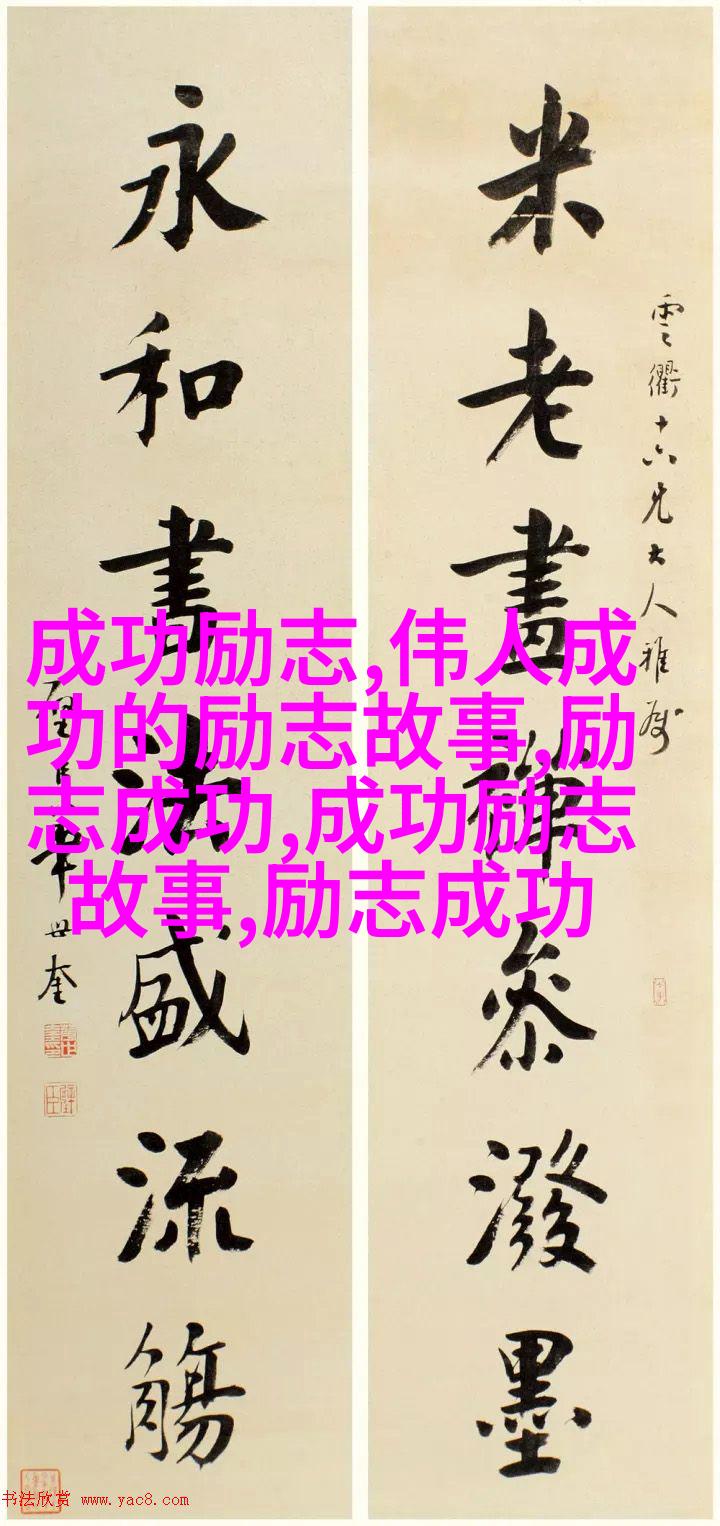 雲衢十六兄大人雅属
米老畫禪參潑墨
永和書法盛流觴
璧臣華世奎
成功励志,伟人成
功的励志故事,励
志成功,成功励志
故事,励志成功
书法欣赏 www.yac8.com